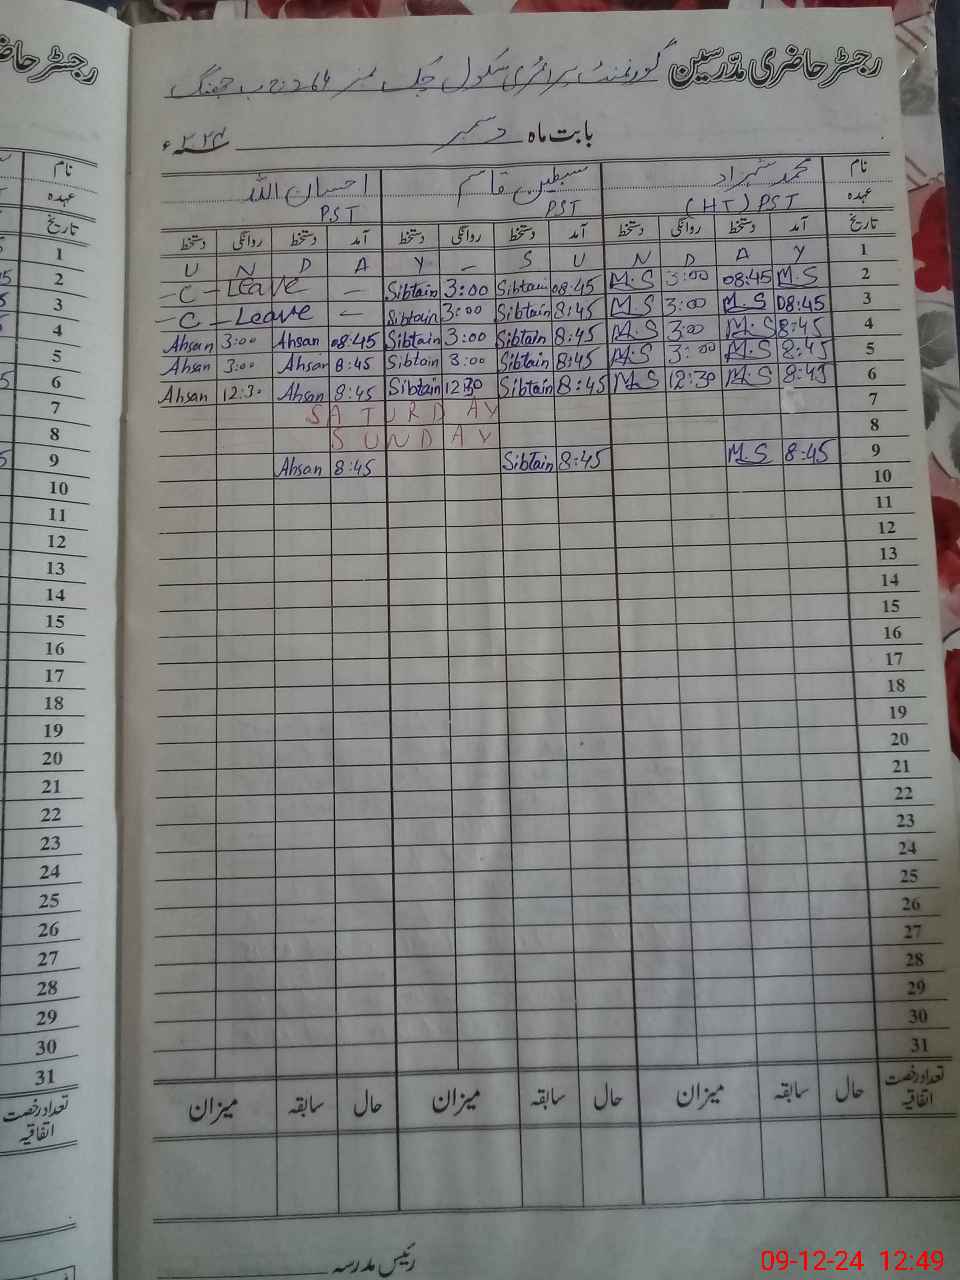 رجسٹر حاضری مدرسین گورنمنٹ پرائمری سکول چک نمبر 264 ج ب جھنگ
بابت ماہ دسمبر ۲۰۲۴ء
نام محمد شہزاد سبطین قاسم احسان اللہ
عہدہ (HT) PST PST PST
تاریخ آمد دستخط روانگی دستخط آمد دستخط روانگی دستخط آمد دستخط روانگی دستخط
U N D A Y - S U N D A Y 1
- C - Leave - Sibtain 3:00 Sibtain 08:45 M.S 3:00 08:45 M.S 2
- C - Leave - Sibtain 3:00 Sibtain 8:45 M.S 3:00 M.S 08:45 3
Ahsan 3:00 Ahsan 08:45 Sibtain 3:00 Sibtain 8:45 M.S 3:00 M.S 8:45 4
Ahsan 3:00 Ahsan 8:45 Sibtain 3:00 Sibtain 8:45 M.S 3:00 M.S 8:45 5
Ahsan 12:30 Ahsan 8:45 Sibtain 12:30 Sibtain 8:45 M.S 12:30 M.S 8:45 6
SATURDAY 7
SUNDAY 8
Ahsan 8:45 Sibtain 8:45 M.S 8:45 9
10
11
12
13
14
15
16
17
18
19
20
21
22
23
24
25
26
27
28
29
30
31
تعداد رخصت اتفاقیہ حال سابقہ میزان حال سابقہ میزان حال سابقہ میزان
رئیس مدرسہ
09-12-24 12:49
رجسٹر حاضر
نام
عہدہ
تاریخ
1
2
3
4
5
6
7
8
9
10
11
12
13
14
15
16
17
18
19
20
21
22
23
24
25
26
27
28
29
30
31
تعداد رخصت
اتفاقیہ